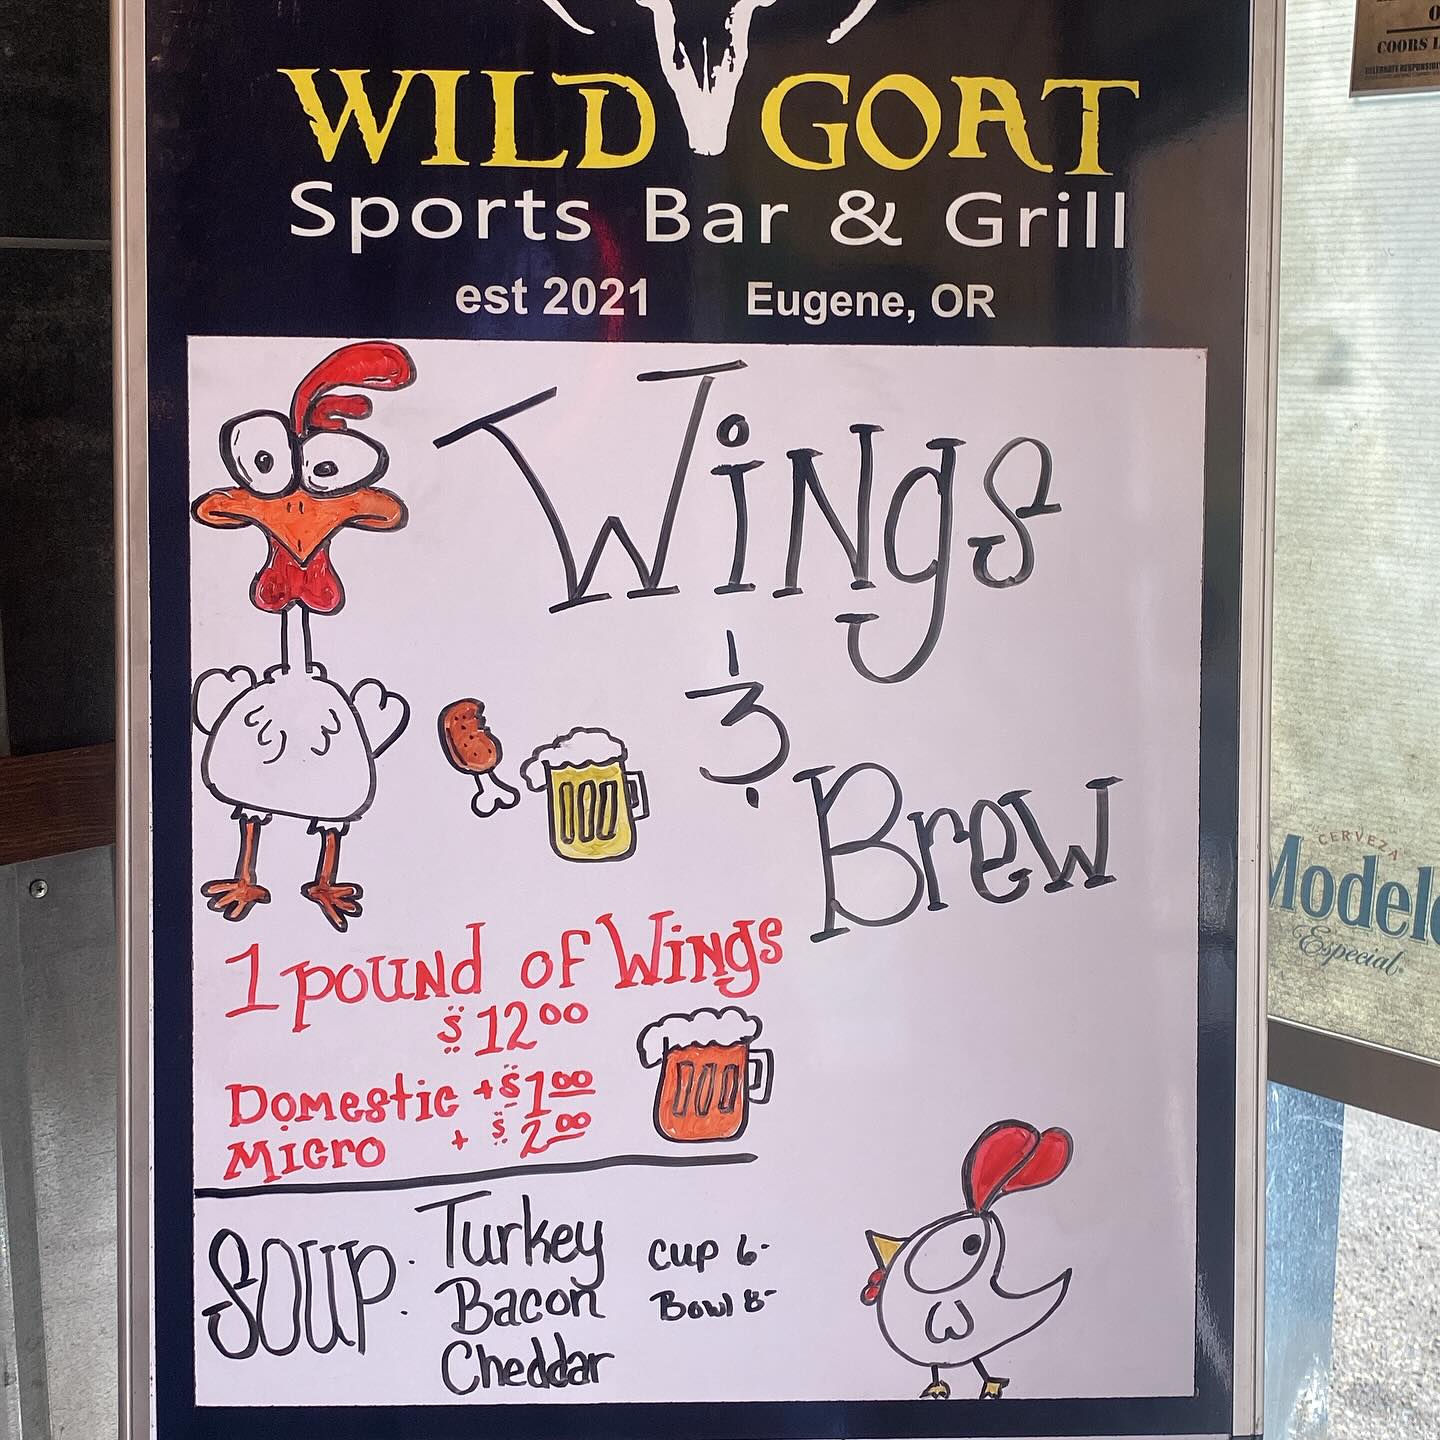 WILD GOAT
Sports Bar & Grill
est 2021 Eugene, OR
Wings
&
Brew
1 pound of Wings
$12.00
Domestic +$1.00
Micro + $2.00
Soup: Turkey
Bacon
Cheddar
Cup 6-
Bowl 8-
COORS
CERVEZA
Modelo
Especial